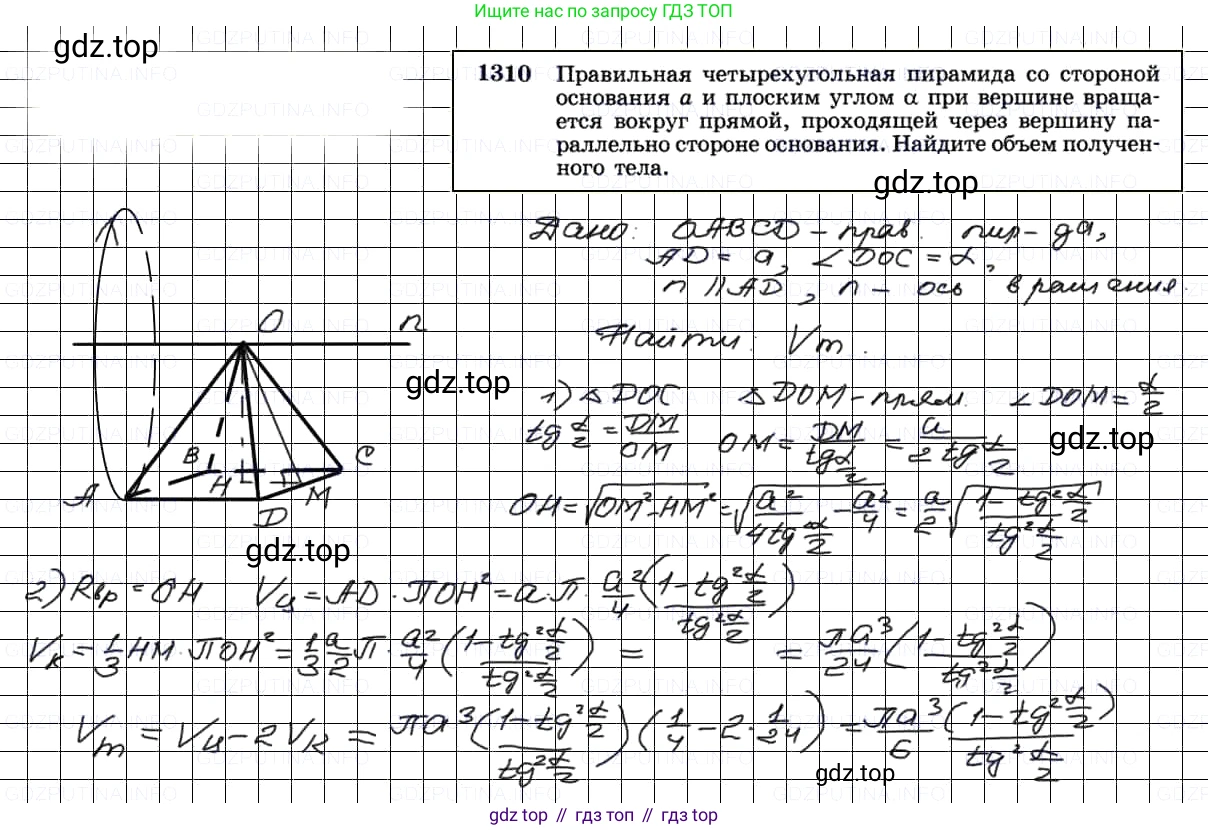 Ищите нас по запросу ГДЗ ТОП
gdz.top
1310 Правильная четырехугольная пирамида со стороной
основания a и плоским углом α при вершине враща-
ется вокруг прямой, проходящей через вершину па-
раллельно стороне основания. Найдите объем получен-
ного тела.
gdz.top
Дано: OABCD – прав. пир-да,
AD = a, ∠DOC = α,
n || AD, n – ось вращения.
Найти: Vт.
O n
gdz.top
A B C D H M
gdz.top
1) △DOC △DOM – прям. ∠DOM = α/2
tg α/2 = DM/OM OM = DM/tg α/2 = a/(2 tg α/2)
gdz.top
OH = √(OM² – HM²) = √(a²/(4tg α/2) – a²/4) = a/2 √((1 – tg² α/2)/(tg² α/2))
2) Rвр = OH Vц = AD · ПOH² = a · П · a²/4 ((1 – tg² α/2)/(tg² α/2))
Vк = 1/3 HM · ПOH² = 1/3 a/2 П · a²/4 ((1 – tg² α/2)/(tg² α/2)) = = πa³/24 ((1 – tg² α/2)/(tg² α/2))
Vт = Vц – 2Vк = πa³ ((1 – tg² α/2)/(tg² α/2)) (1/4 – 2 · 1/24) = πa³/6 ((1 – tg² α/2)/(tg² α/2))
gdz.top
gdz top // гдз топ // gdz top
GDZPUTINA.INFO